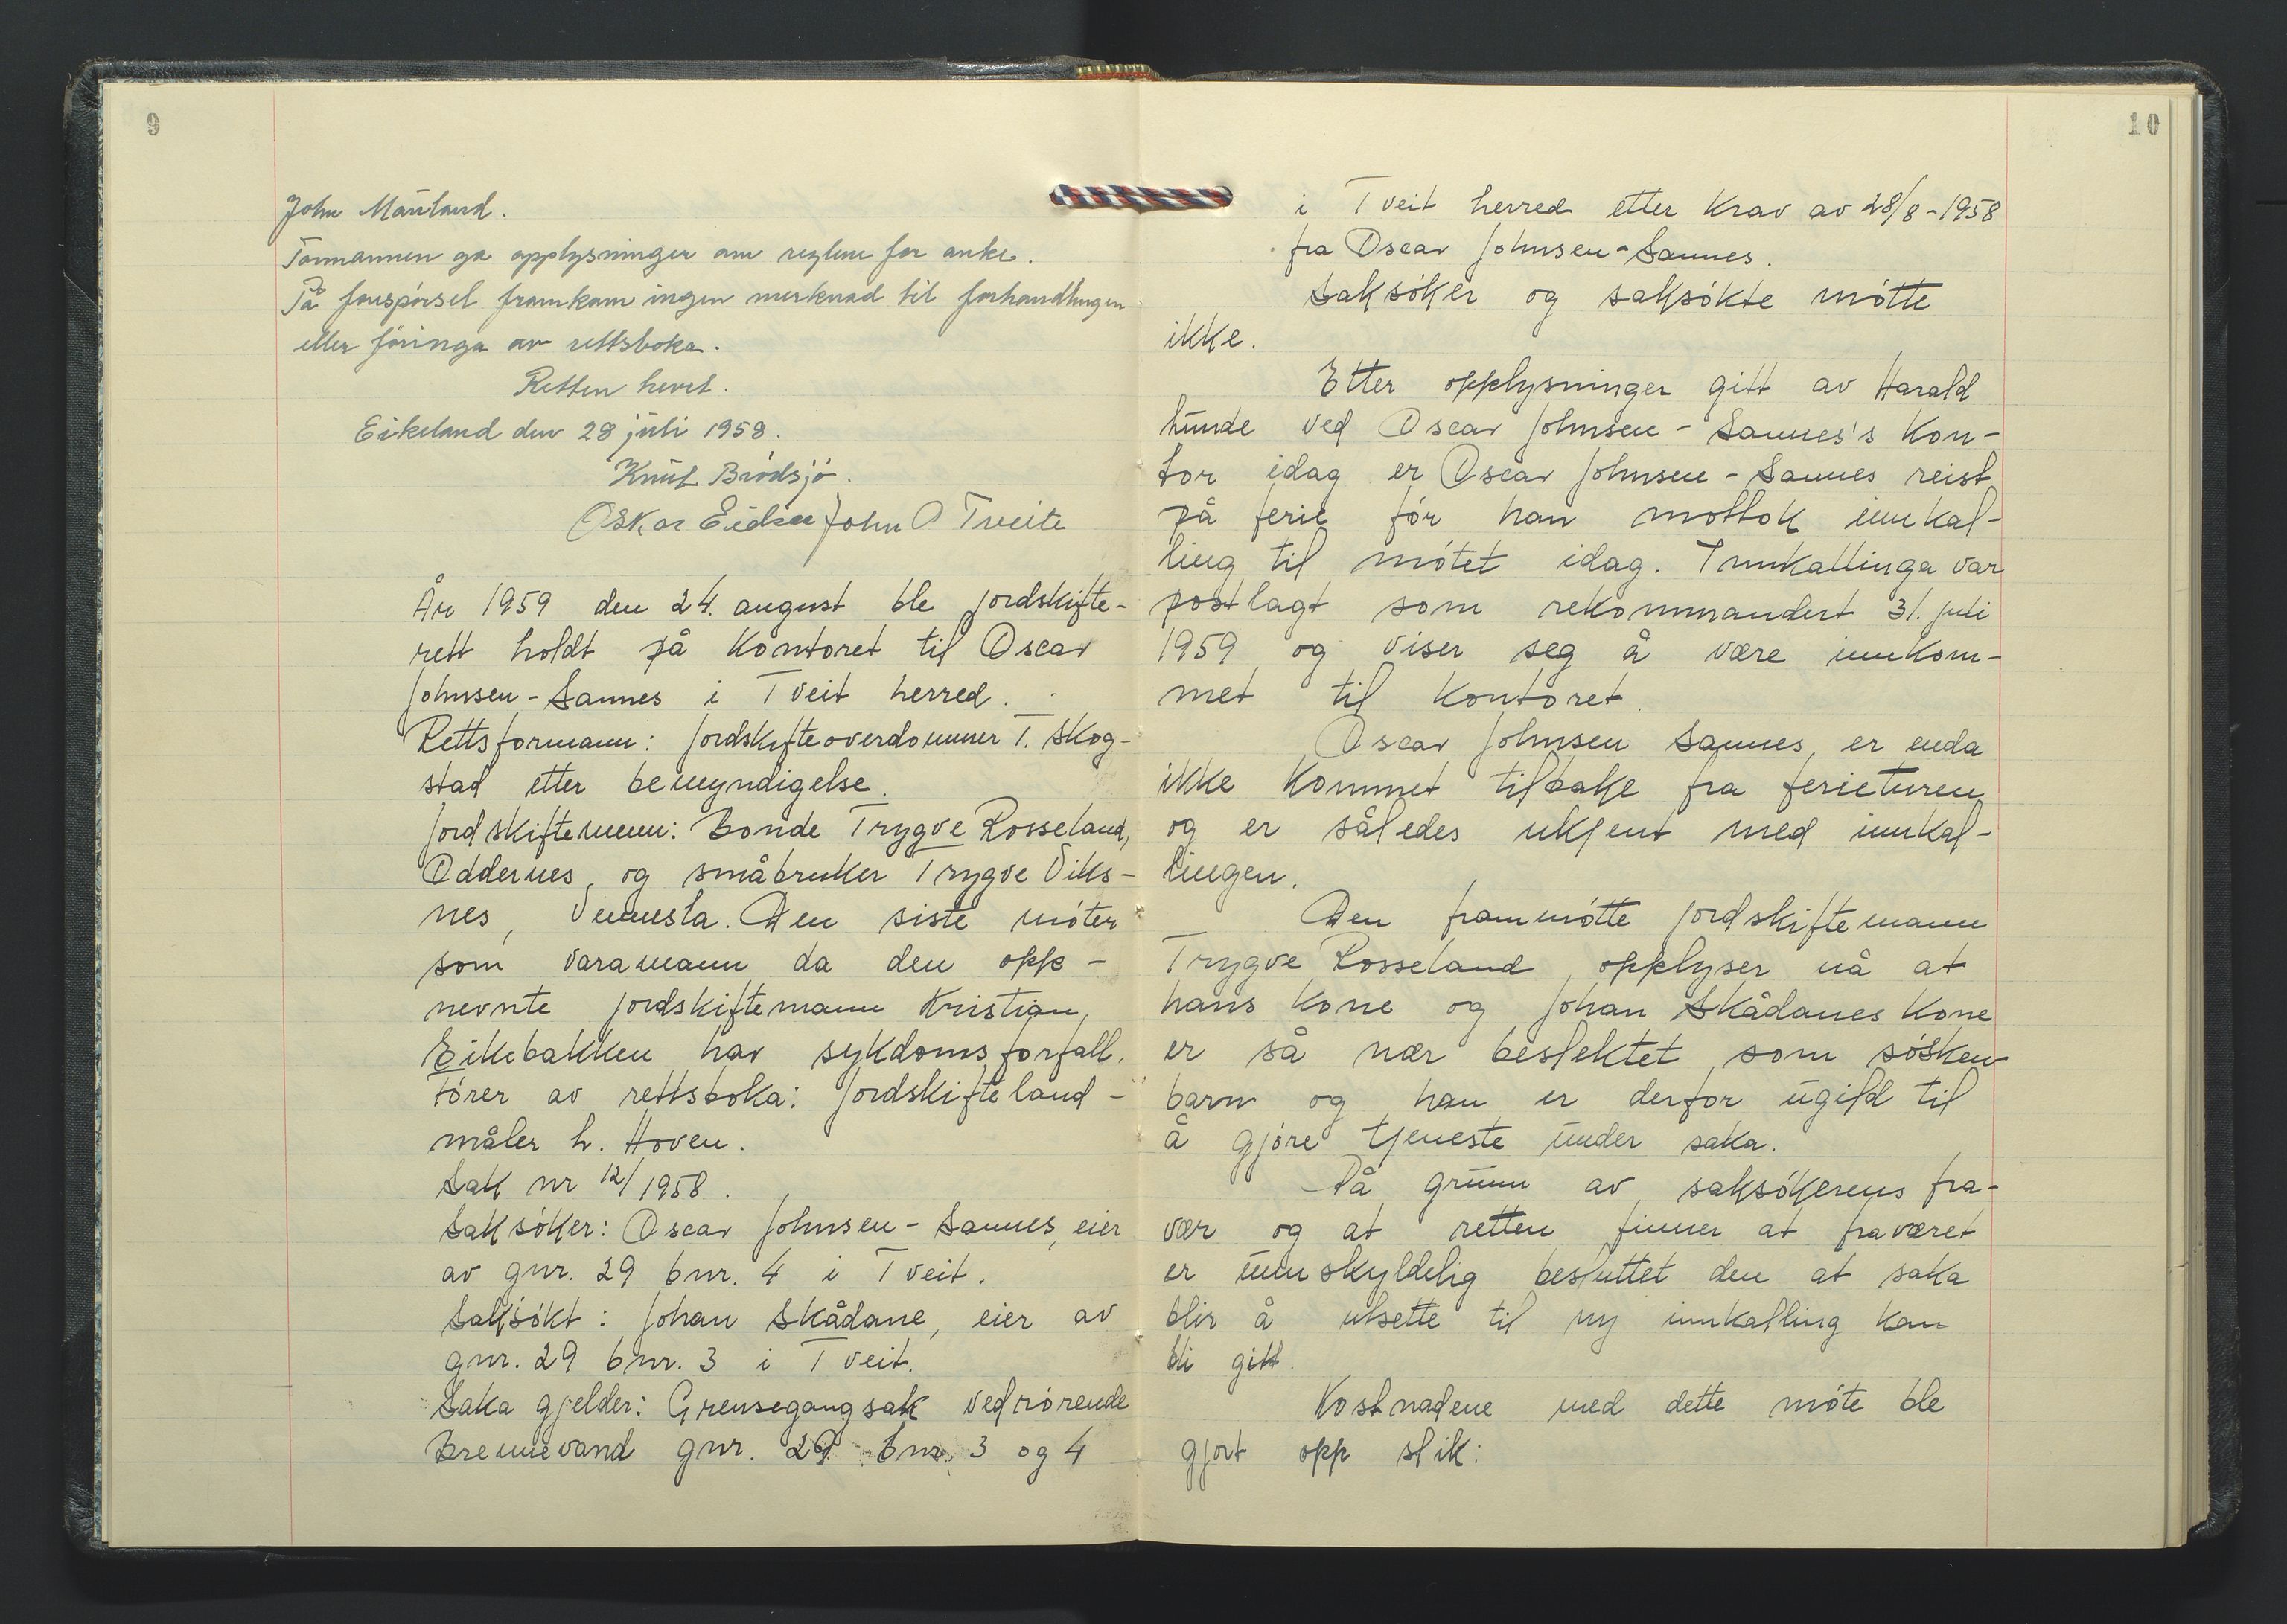 9
John Mauland.
Formannen ga opplysninger om reglene for anke.
På forespørsel framkom ingen merknad til forhandlingen
eller føringa av rettsboka.
Retten hevet.
Eikeland den 28 juli 1958.
Knut Brødsjø.
Oskar Eidsaa John O Tveite
År 1959 den 24. august ble jordskifte-
rett holdt på kontoret til Oscar
Johnsen-Sannes i Tveit herred.
Rettsformann: Jordskifteoverdommer T. Skog-
stad etter bemyndigelse.
Jordskiftemenn: Bonde Trygve Rosseland,
Oddernes, og småbruker Trygve Viks-
nes, Vennesla. Den siste møter
som varamann da den opp-
nevnte jordskiftemann Kristian
Eikebakken har sykdomsforfall.
Fører av rettsboka: Jordskifteland-
måler h. Hoven.
Sak nr 12/1958.
Saksøker: Oscar Johnsen-Sannes, eier
av gnr. 29 bnr. 4 i Tveit.
Saksøkt: Johan Skådane, eier av
gnr. 29 bnr. 3 i Tveit.
Saka gjelder: Grensegangsak vedrørende
Brennevand gnr. 29 bnr. 3 og 4
10
i Tveit herred etter krav av 28/8-1958
fra Oscar Johnsen-Sannes.
Saksøker og saksøkte møtte
ikke.
Etter opplysninger gitt av Harald
Lunde ved Oscar Johnsen-Sannes's kon-
tor idag er Oscar Johnsen-Sannes reist
på ferie før han mottok innkal-
ling til møtet idag. Innkallinga var
postlagt som rekommandert 31. juli
1959 og viser seg å være innkom-
met til kontoret.
Oscar Johnsen Sannes, er enda
ikke kommet tilbake fra ferieturen
og er således ukjent med innkal-
lingen.
Den frammøtte jordskiftemann
Trygve Rosseland, opplyser nå at
hans kone og Johan Skådanes kone
er så nær beslektet som søsken
barn og han er derfor ugild til
å gjøre tjeneste under saka.
På grunn av saksøkerens fra-
vær og at retten finner at fraværet
er unnskyldelig besluttet den at saka
blir å utsette til ny innkalling kan
bli gitt.
Kostnadene med dette møte ble
gjort opp slik: